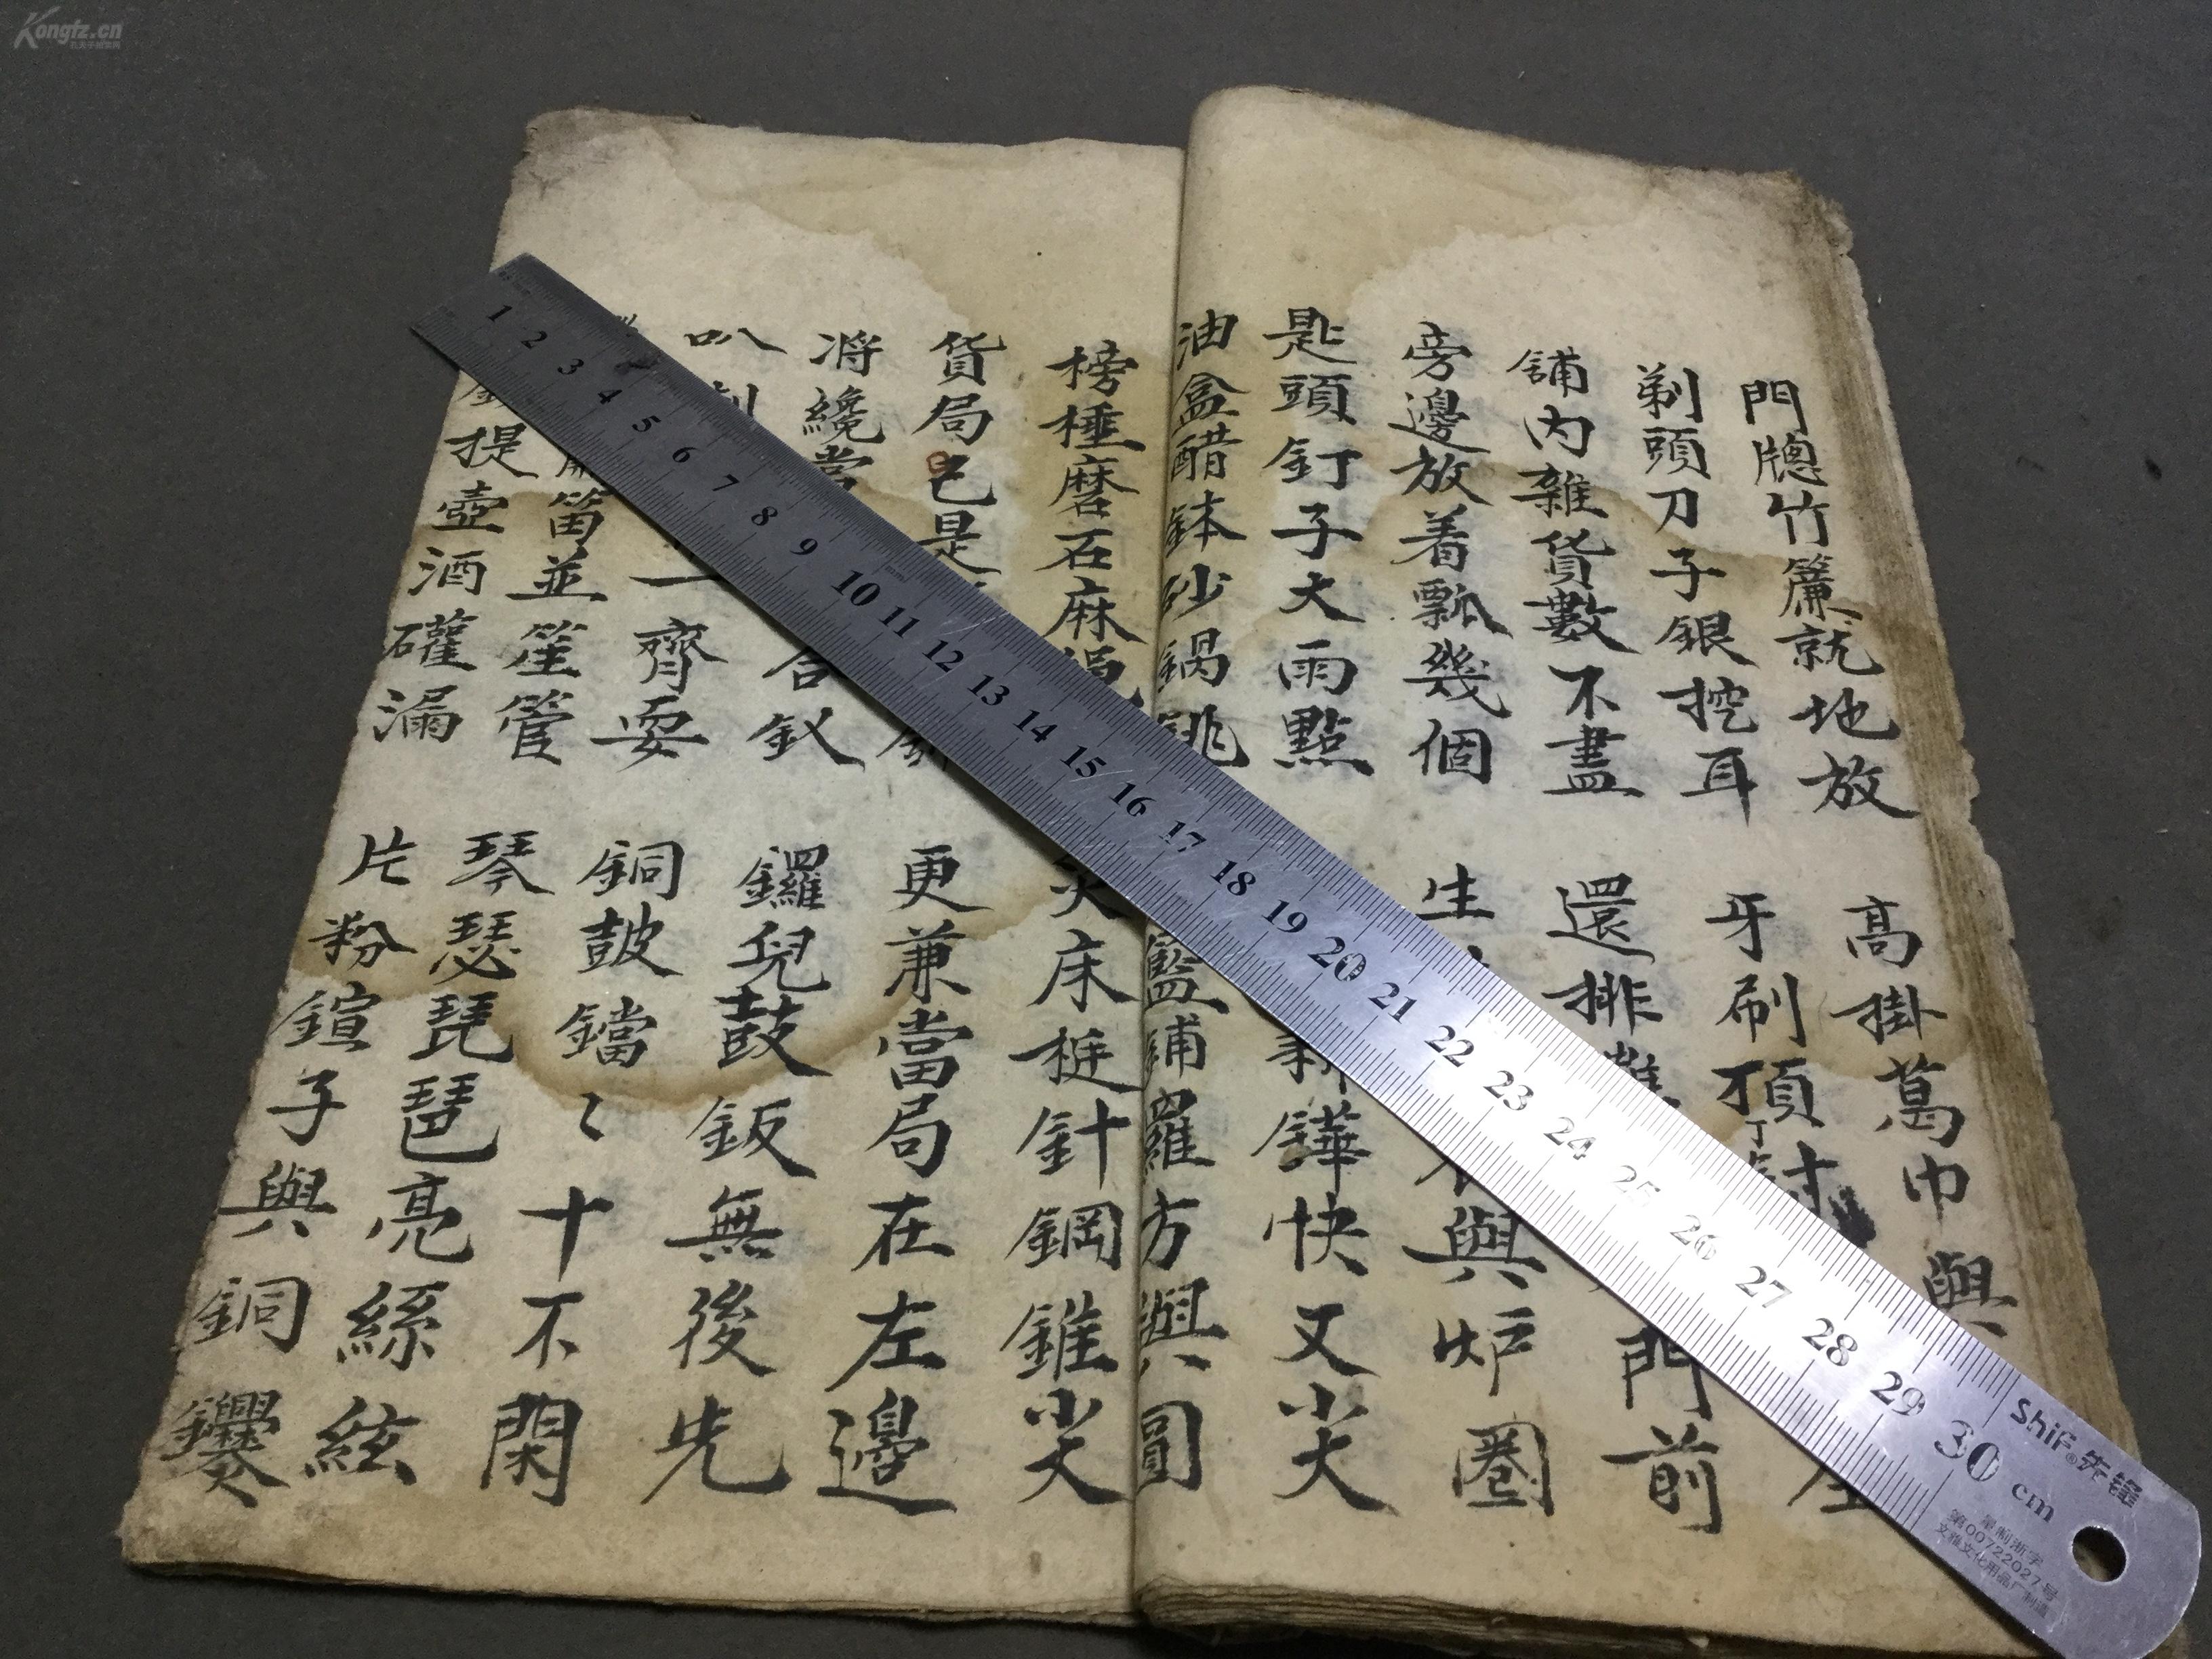 門牕竹簾就地放 高掛萬巾與
剃頭刀子銀挖耳 牙刷頂針
舖内雜貨數不盡 還排 門前
旁邊放着瓢幾個 生 與炉圈
匙頭釘子大雨點 鏵快又尖
油盒醋鉢砂鍋銚 籃鋪羅方與圓
榜棰磨石麻繩 床梃針鋼錐尖
貨局已是 更兼當局在左邊
将纔當 合釵 鑼兒鼓鈑無後先
叭 一齊耍 銅鼓鐺〻十不閑
笛並笙管 琴瑟琵琶亮絲絃
提壺酒礶漏 片粉鍹子與銅鑼
Kongfz.cn
孔夫子旧书网
1 2 3 4 5 6 7 8 9 10 11 12 13 14 15 16 17 18 19 20 21 22 23 24 25 26 27 28 29 30 cm
Shif®先锋
量制浙字
第00722027号
文雅文化用品厂制造